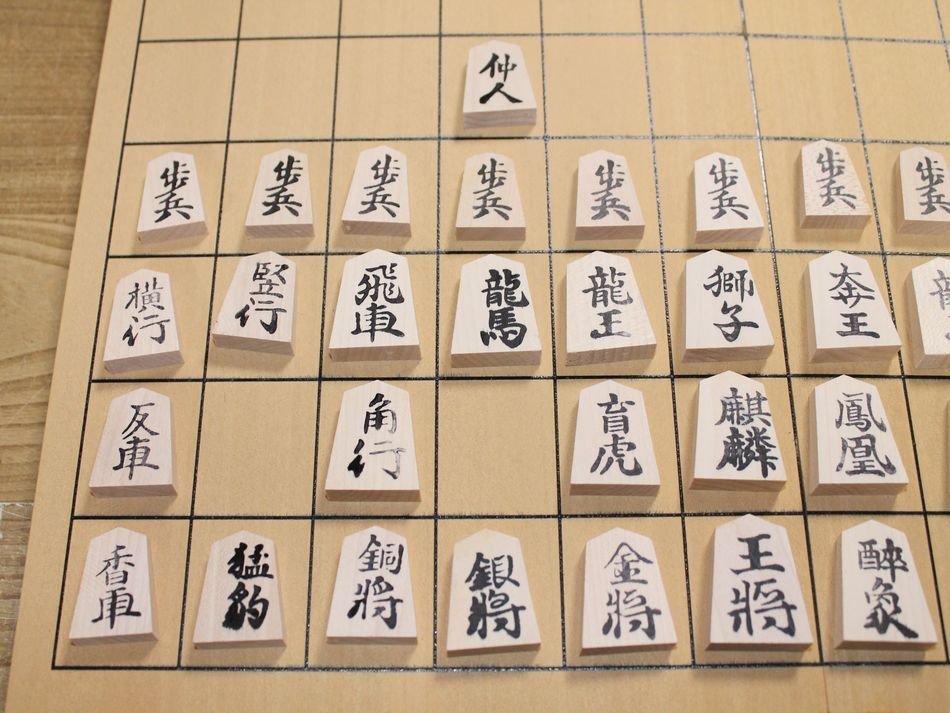 仲人
歩兵 歩兵 歩兵 歩兵 歩兵 歩兵 歩兵 歩兵
横行 竪行 飛車 龍馬 龍王 獅子 奔王 龍
反車 角行 盲虎 麒麟 鳳凰
香車 猛豹 銅将 銀将 金将 王将 酔象